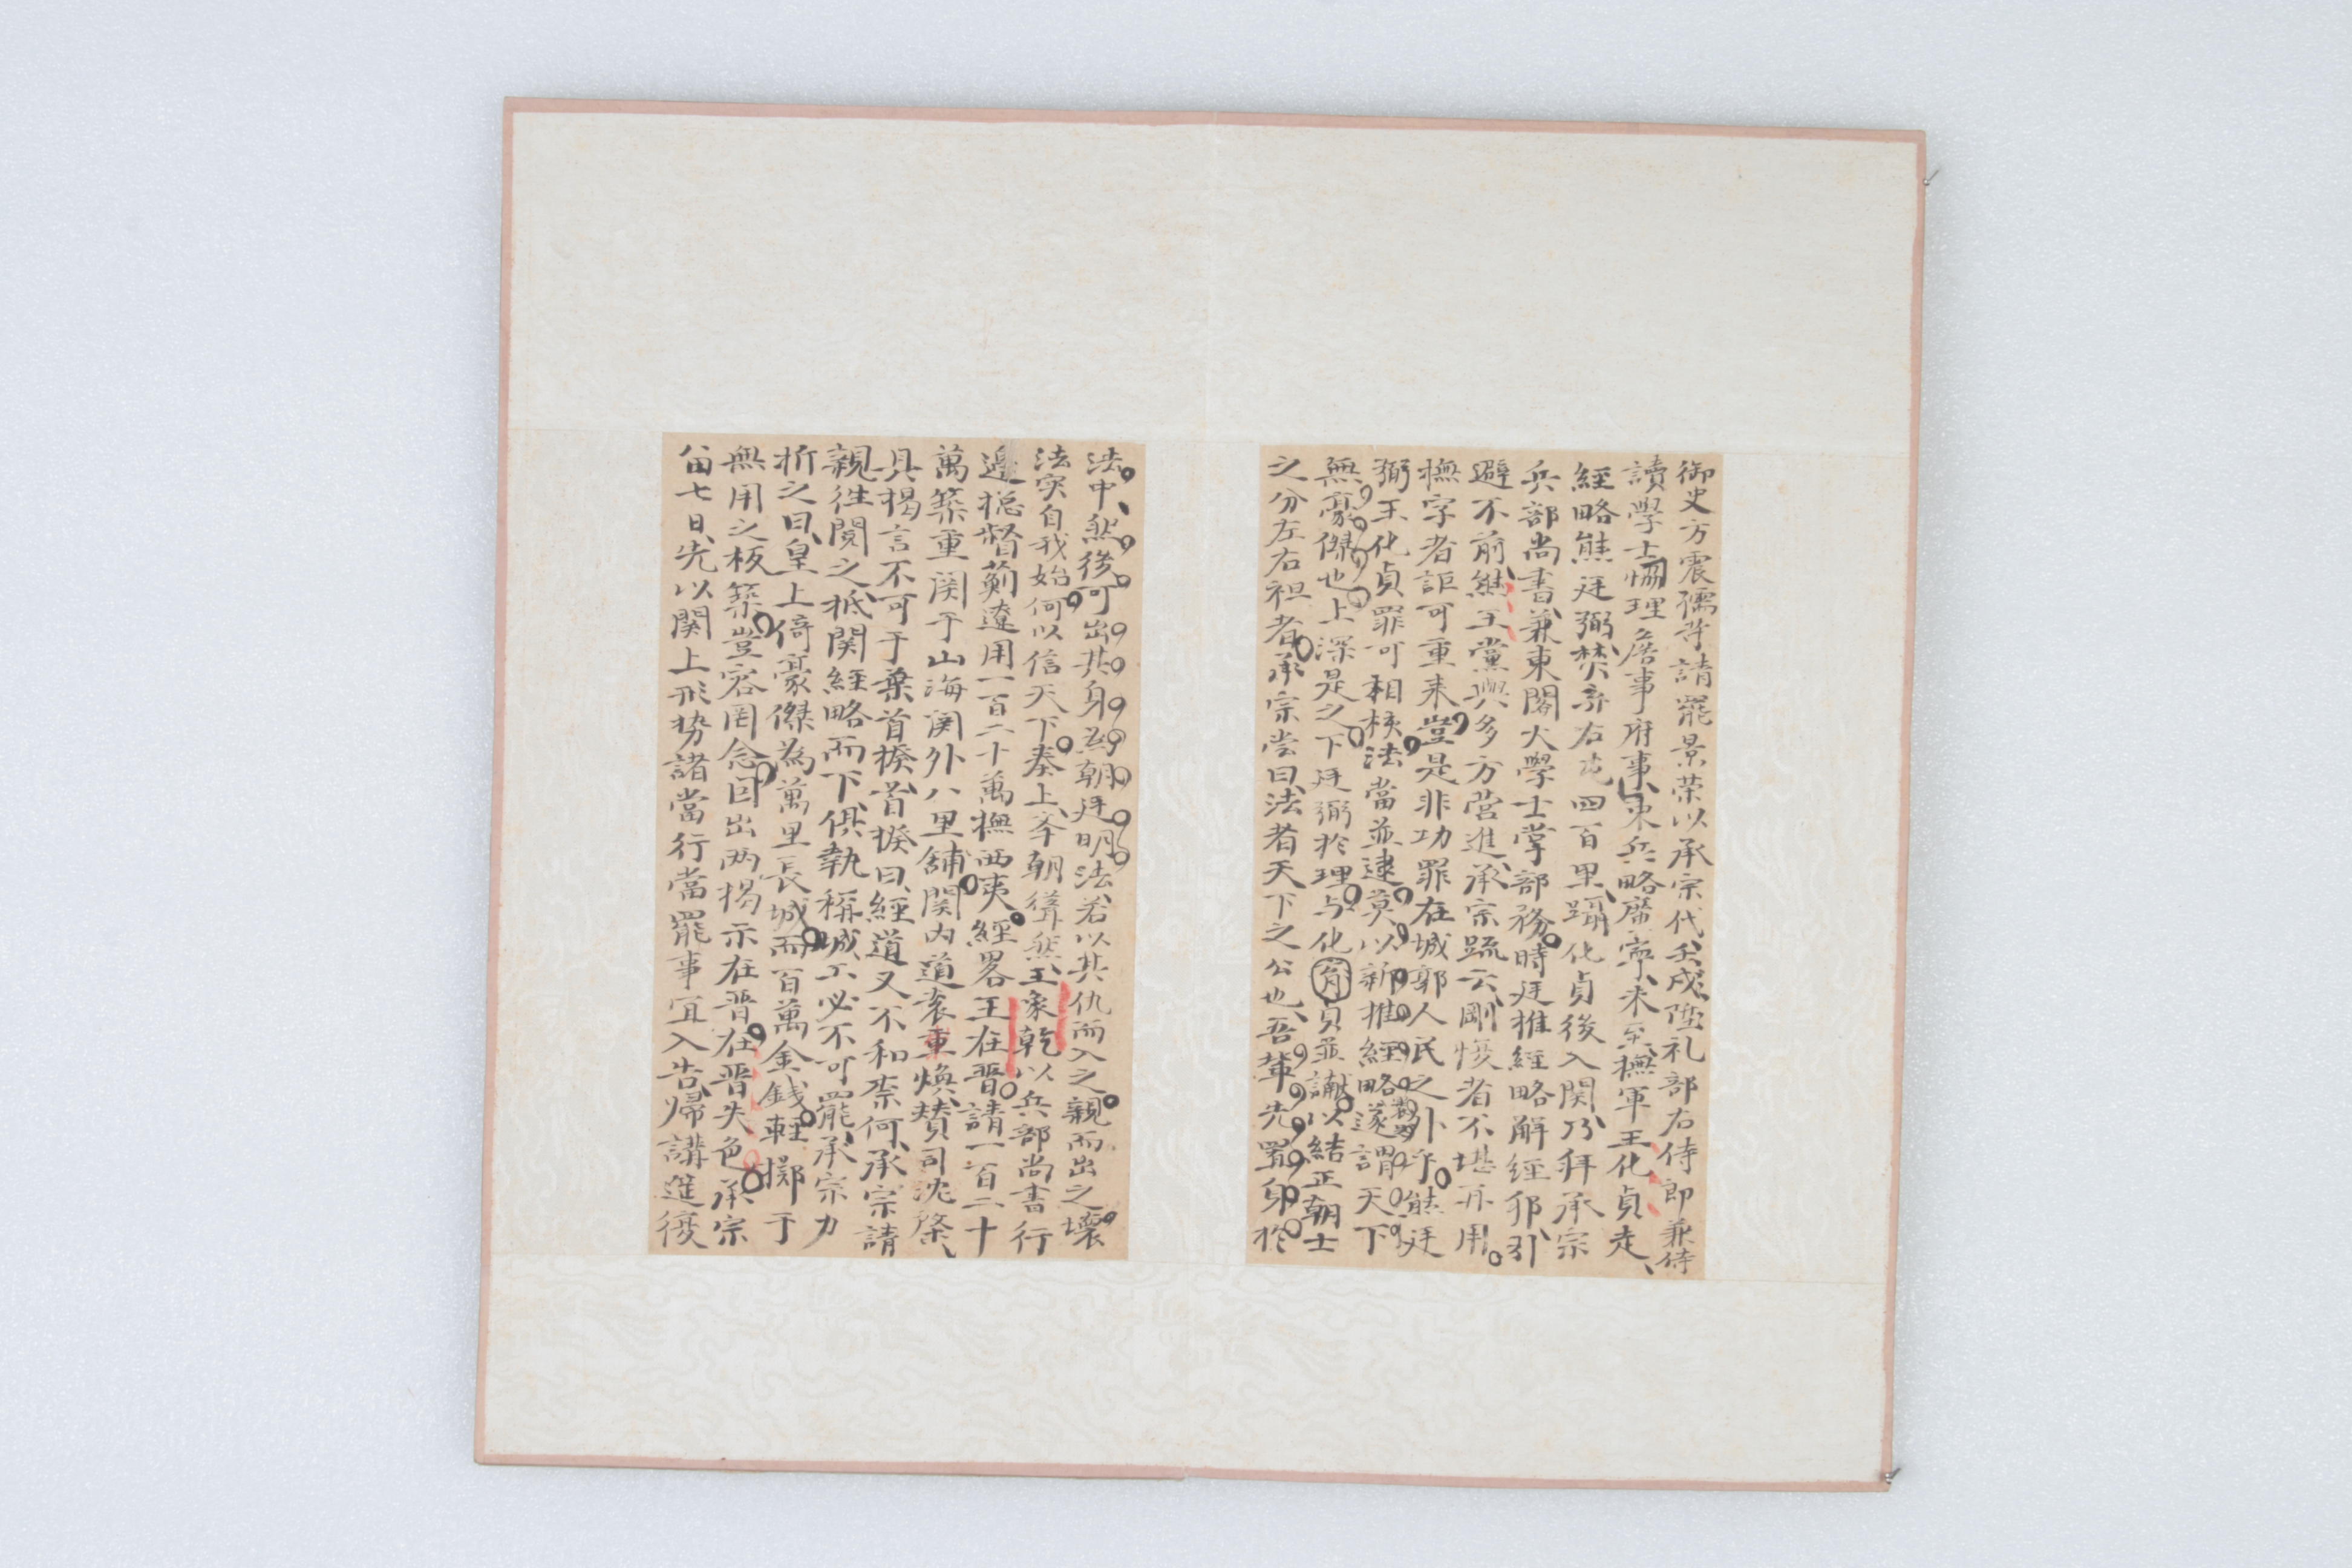 御史方震孺等請罷景荣以承宗代壬戍陞礼部右侍郎兼侍
讀學士恊理詹事府事東兵略廣寧未至撫軍王化貞走
經略熊廷弼焚弃右屯四百里躡化貞後入関乃拜承宗
兵部尚書兼東閣大學士掌部務時廷推經略解經邦引
避不前継王黨與多方營進承宗疏云剛愎者不堪再用
撫字者詎可重来豈是非功罪在城郭人民之外乎熊廷
弼王化貞罪可相核法當並逮莫以新推經略遂謂天下
無豪傑也上深是之下廷弼於理与化貞並讞以結正朝士
之分左右袒者承宗尝曰法者天下之公也吾輩先置身於
法中然後可出其身為朝廷明法若以其仇而入之親而出之壞
法实自我始何以信天下奏上举朝聳然王象乾以兵部尚書行
邉揔督薊遼用一百二十萬撫西夷經畧王在晋請一百二十
萬築重関于山海関外八里舖関内道袁重焕賛司沈棨
具揭言不可于葉首揆首揆曰經道又不和柰何承宗請
親徃閲之抵関經略而下俱執稱城工必不可罷承宗力
折之曰皇上倚豪傑為萬里長城而百萬金錢輕擲于
無用之板築豈容罔念因出两揭示在晋在晋失色承宗
畱七日先以関上形势諸當行當罷事冝入告歸講筵復